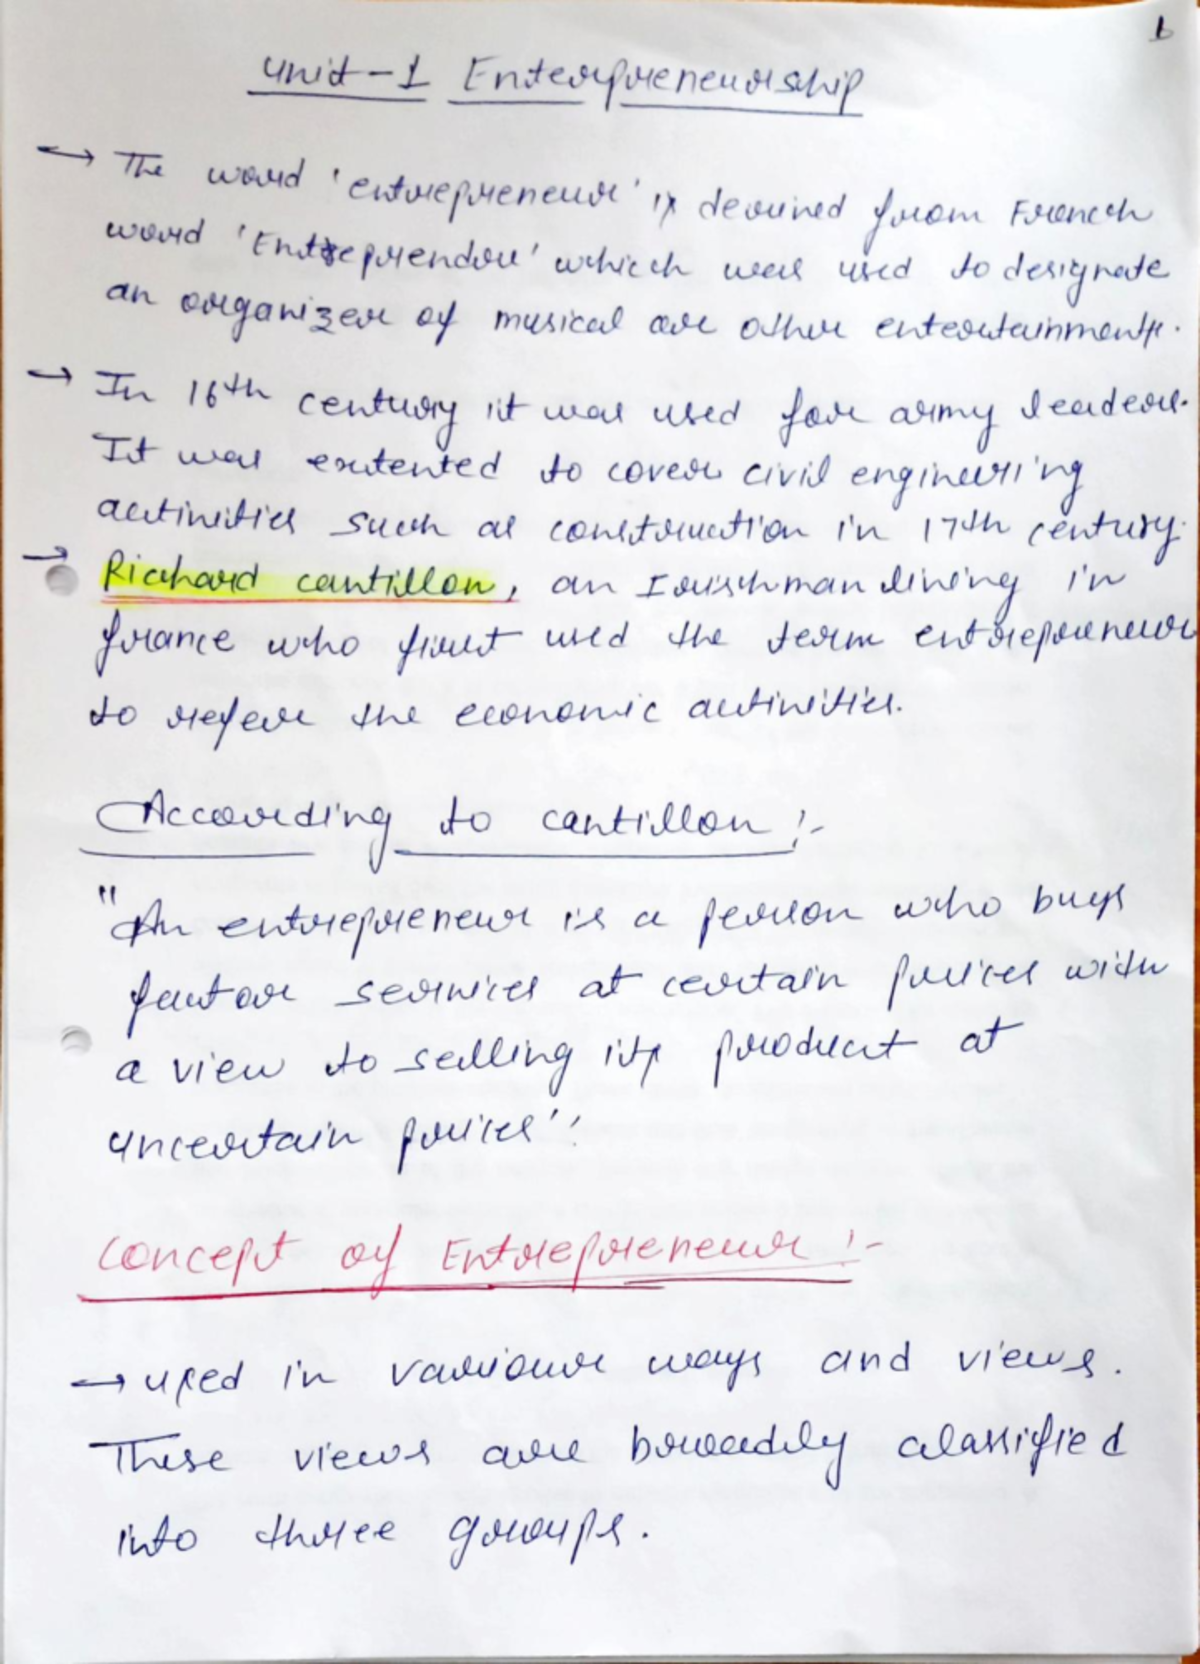 1
Unit-1 Enterpreneurship
→ The word 'entrepreneur' is derived from French
word 'Entreprendre' which was used to designate
an organizer of musical or other entertainments.
→ In 16th century it was used for army leaders.
It was extented to cover civil engineering
activities such as construction in 17th century.
→ Richard cantillon, an Irishman living in
france who first used the term entrepreneur
to refer the economic activities.
According to cantillon :-
"An entrepreneur is a person who buys
factor services at certain prices with
a view to selling its product at
uncertain prices".
Concept of Entrepreneur :-
→ used in various ways and views.
These views are broadly classified
into three groups.